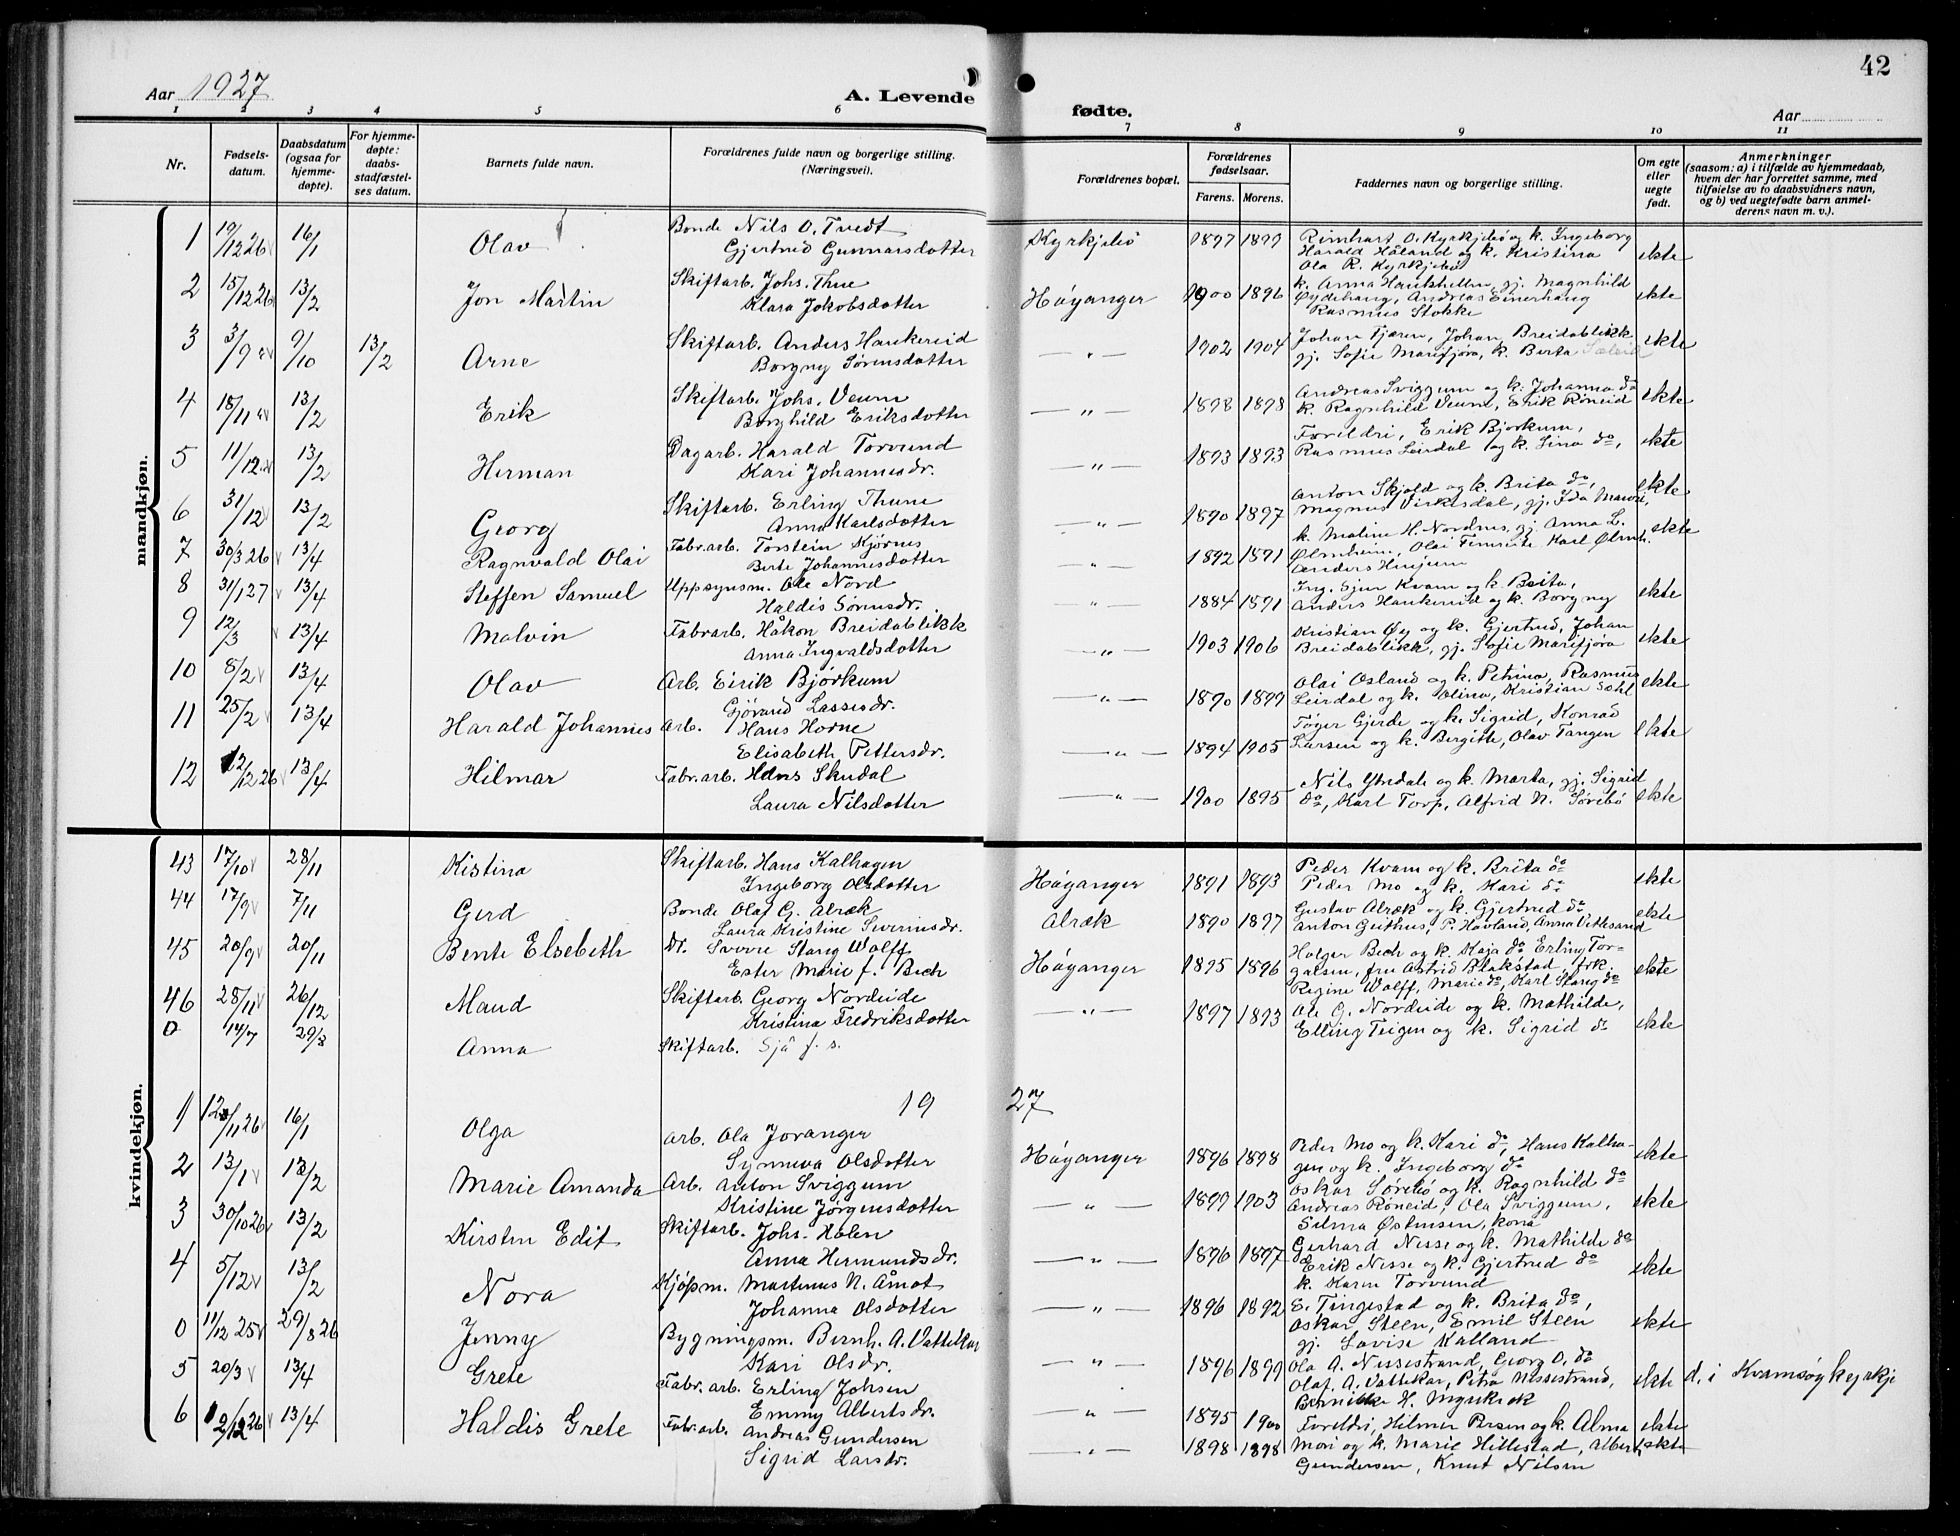 42
Aar 1927
A. Levende fødte.
Aar
1 2 3 4 5 6 7 8 9 10 11
Nr. | Fødsels-datum. | Daabsdatum (ogsaa for hjemme-døpte). | For hjemme-døpte: daabs-stadfæstel-ses datum. | Barnets fulde navn. | Forældrenes fulde navn og borgerlige stilling. (Næringsvei). | Forældrenes bopæl. | Forældrenes fødselsaar. Farens. Morens. | Faddernes navn og borgerlige stilling. | Om egte eller uegte født. | Anmerkninger (saasom: a) i tilfælde av hjemmedaab, hvem der har forrettet samme, med tilføielse av to daabsvidners navn, og b) ved uegtefødte barn anmel-derens navn m. v.).
mandkjøn.
1 19/12 26 16/1 Olav Bonde Nils O. Tvedt Gjertrud Gunnarsdotter Kyrkjebö 1897 1899 Rimhart O. Kyrkjebö og k. Ingeborg Harald Håland og k. Kristina Ola R. Kyrkjebö ekte
2 15/12 26 13/2 Jon Martin Skiftarb. Johs. Thue Klara Jakobsdotter Höyanger 1900 1896 k. Anna Haukshellen, gj. Magnhild Øydehaug, Andreas Einerhaug Rasmus Stokke ekte
3 3/9 9/10 13/2 Arne Skiftarb. Anders Haukereid Borgny Sörensdotter — " — 1902 1904 Johan Fjæren, Johan Breidablikk gj. Sofie Marifjöra, k. Berta ekte
4 18/11 13/2 Erik Skiftarb. Johs. Veum Borghild Eriksdotter — " — 1898 1898 Andreas Sviggum og k. Johanna do k. Ragnhild Veum, Erik Röneid ekte
5 11/12 13/2 Herman Dagarb. Harald Torvund Kari Johannesdr. — " — 1893 1893 Foreldri, Erik Bjorkum, Rasmus Leirdal og k. Sina do, ekte
6 31/12 13/2 Georg Skiftarb. Erling Thune Anna Karlsdotter — " — 1890 1897 Anton Skjold og k. Brita do, Magnus Virkesdal, gj. Ida ekte
7 30/3 26 13/4 Ragnvald Olai Fabr.arb. Torstein Kjörnes Berte Johannesdotter — " — 1892 1891 k. Maline H. Nordnes, gj. Anna L. Ølmheim, Olai Karl Ølmh. Anders ekte
8 31/1 27 13/4 Steffen Samuel Uppsynsm. Ole Nord Haldis Sörensdr. — " — 1884 1891 Ing. Sjur Kvam og k. Brita, Anders Haukereid og k. Borgny ekte
9 12/3 13/4 Malvin Fabr.arb. Håkon Breidablikk Anna Ingvaldsdotter — " — 1903 1906 Kristian Øy og k. Gjertrud, Johan Breidablikk, gj. Sofie Marifjöra ekte
10 8/2 13/4 Olav Arb. Eirik Bjørkum Gjöraud Lassesdr. — " — 1890 1899 Olai Osland og k. Petrina, Rasmus Leirdal og k. Olina, Kristian Dahl ekte
11 25/2 13/4 Harald Johannes Arb. Hans Horne Elisabeth Pettersdr. — " — 1894 1905 Töger Gjerde og k. Sigrid, Konrad Larsen og k. Bergitte, Olav Tangen ekte
12 12/12 26 13/4 Hilmar Fabr.arb. Hans Skudal Laura Nilsdotter — " — 1900 1895 Nils Ytredale og k. Marta, gj. Sigrid do, Karl Torp, Alfrid N. Sörebö ekte
kvindekjøn.
43 17/10 28/11 Kistina Skiftarb. Hans Kalhagen Ingeborg Olsdotter Höyanger 1891 1893 Peder Kvam og k. Brita do Peder Mo og k. Kari do ekte
44 17/9 7/11 Gerd Bonde Olaf G. Alræk Laura Kristine Siverinsdr. Alræk 1890 1897 Gustav Alræk og k. Gjertrud do Anton Geithus, P. Hovland, Anna Vettesand ekte
45 20/9 20/11 Bente Elsebeth Dr. Sverre Stang Wolff Ester Marie f. Bech Höyanger 1895 1896 Holger Bech og k. Kaja do Erling Tor-galsen, fru Astrid Blakstad, frk. Regine Wolff, Marie do, Karl Stang do ekte
46 28/11 26/12 Maud Skiftarb. Georg Nordeide Kristina Fredriksdotter — " — 1897 1893 Ole G. Nordeide og k. Mathilde, Elling Teigen og k. Sigrid do ekte
0 14/7 29/3 Anna Skiftarb. Sjå f. s.
1927
1 12/11 26 16/1 Olga Arb. Ola Joranger Synneva Olsdotter Höyanger 1896 1898 Peder Mo og k. Kari do, Hans Kalha-gen og k. Ingeborg do ekte
2 13/1 13/2 Marie Amanda Arb. Anton Sviggum Kristine Jörgensdotter — " — 1899 1903 Oskar Sörebö og k. Ragnhild do Andreas Röneid, Ola Sviggum, Silma Østensen, kona ekte
3 30/10 26 13/2 Kirsten Edit Skiftarb. Johs. Holen Anna Hermundsdr. — " — 1896 1897 Gerhard Nesse og k. Mathilde do Erik Nesse og k. Gjertrud do k. Karen Torvund ekte
4 5/12 13/2 Nora Kjöpm. Martinus N. Åmot Johanna Olsdotter — " — 1896 1892 E. Tingestad og k. Brita do, Oskar Steen, Emil Steen gj. Lovise Kalland ekte
0 11/12 25 29/8 26 Jenny Bygningsm. Bernh. A. Vattekar Kari Olsdr. — " — 1896 1899 Ola A. Nessestrand, Georg O. do Olaf. A. Vattekar, Petra Nessestrand, H. ekte d. i Kvamsøy kyrkje
5 20/3 13/4 Grete Fabr.arb. Erling Johsen Emmy Albertsdr. — " — 1895 1900 Foreldri, Hilmer og k. Alma ekte
6 2/12 26 13/4 Haldis Grete Fabr.arb. Andreas Gundersen Sigrid Larsdr. — " — 1898 1898 Mori og k. Marie Hillestad, Albert Gundersen, Knut Nilsen ekte